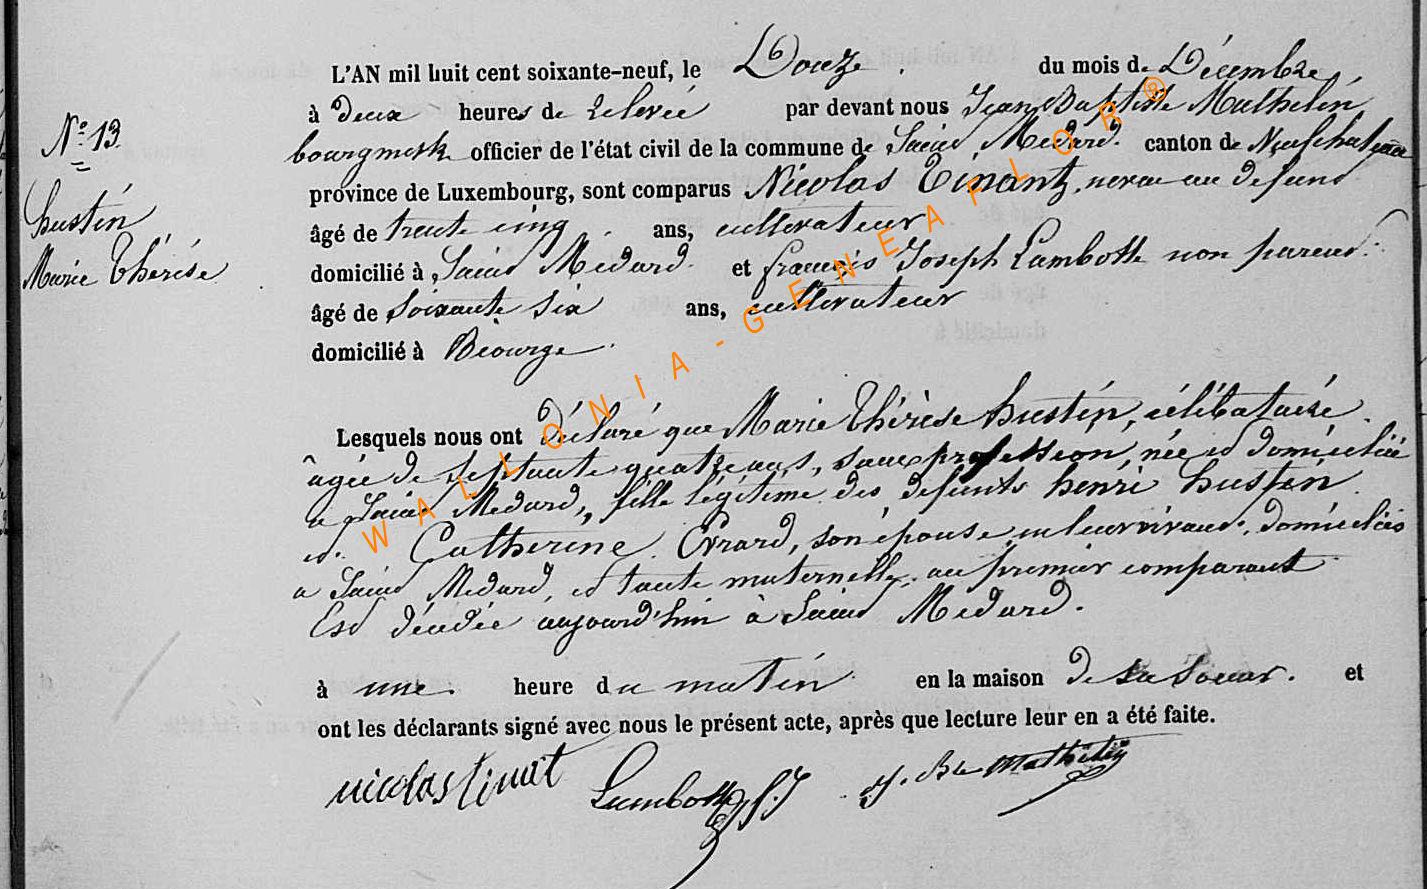 L'AN mil huit cent soixante-neuf, le Douze du mois de Décembre,
à deux heures de relevée par devant nous Jean Baptiste Mathelin
N° 13
bourgmestre officier de l'état civil de la commune de Saint Medard. canton de Neufchateau
province de Luxembourg, sont comparus Nicolas Tinant, neveu au defunt
hustin
âgé de trente cinq ans, cultivateur
Marie Thérèse
domicilié à Saint Medard. et françois Joseph Lambotte non parent.
âgé de soixante six ans, cultivateur
domicilié à Biourge.
Lesquels nous ont déclaré que Marie Thérèse hustin, célibataire
âgée de septante quatre ans, sans profession, née et domiciliée
a Saint Medard, fille légitime des defunts henri hustin
et Catherine Evrard, son épouse en leur vivant, domiciliés
a Saint Medard, et tante maternelle au premier comparant
Est décédée aujourd'hui à Saint Medard.
à une heure du matin en la maison de sa soeur. et
ont les déclarants signé avec nous le présent acte, après que lecture leur en a été faite.
nicolas tinant Lambotte f.J J. Bte Mathelin
WALLONIA-GENEAFLOR®